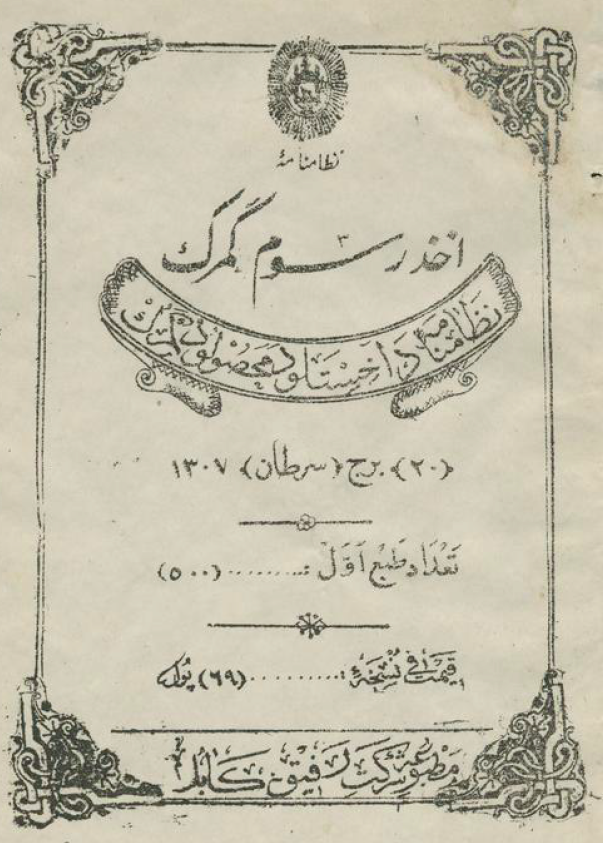 نظامنامهٔ
اخذ رسوم گمرک
نظامنامه د اخیستلو د محصولو د گمرک
(۲۰) برج (سرطان) ۱۳۰۷
تعداد طبع اوّل :........ (۵۰۰)
قیمت فی نسخهٔ :......... (۶۹) پول
مطبوعهٔ شرکت رفیق کابل